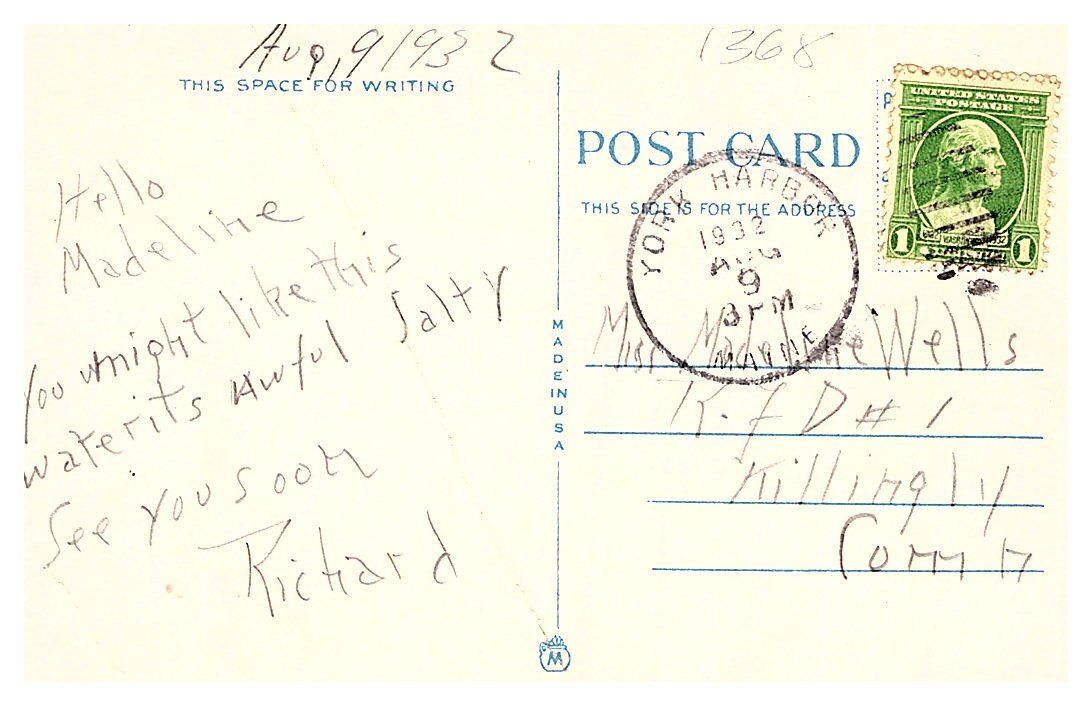 Aug, 9 1932
THIS SPACE FOR WRITING
Hello
Madeline
You might like this
water its awful salty
See you soon
Richard
MADE IN USA
M
1368
POST CARD
THIS SIDE IS FOR THE ADDRESS
P
UNITED STATES
POSTAGE
1 1
YORK HARBOR
1932
AUG
9
3 PM
MAINE
Miss Madeline Wells
R. F D # 1
Killingly
Conn